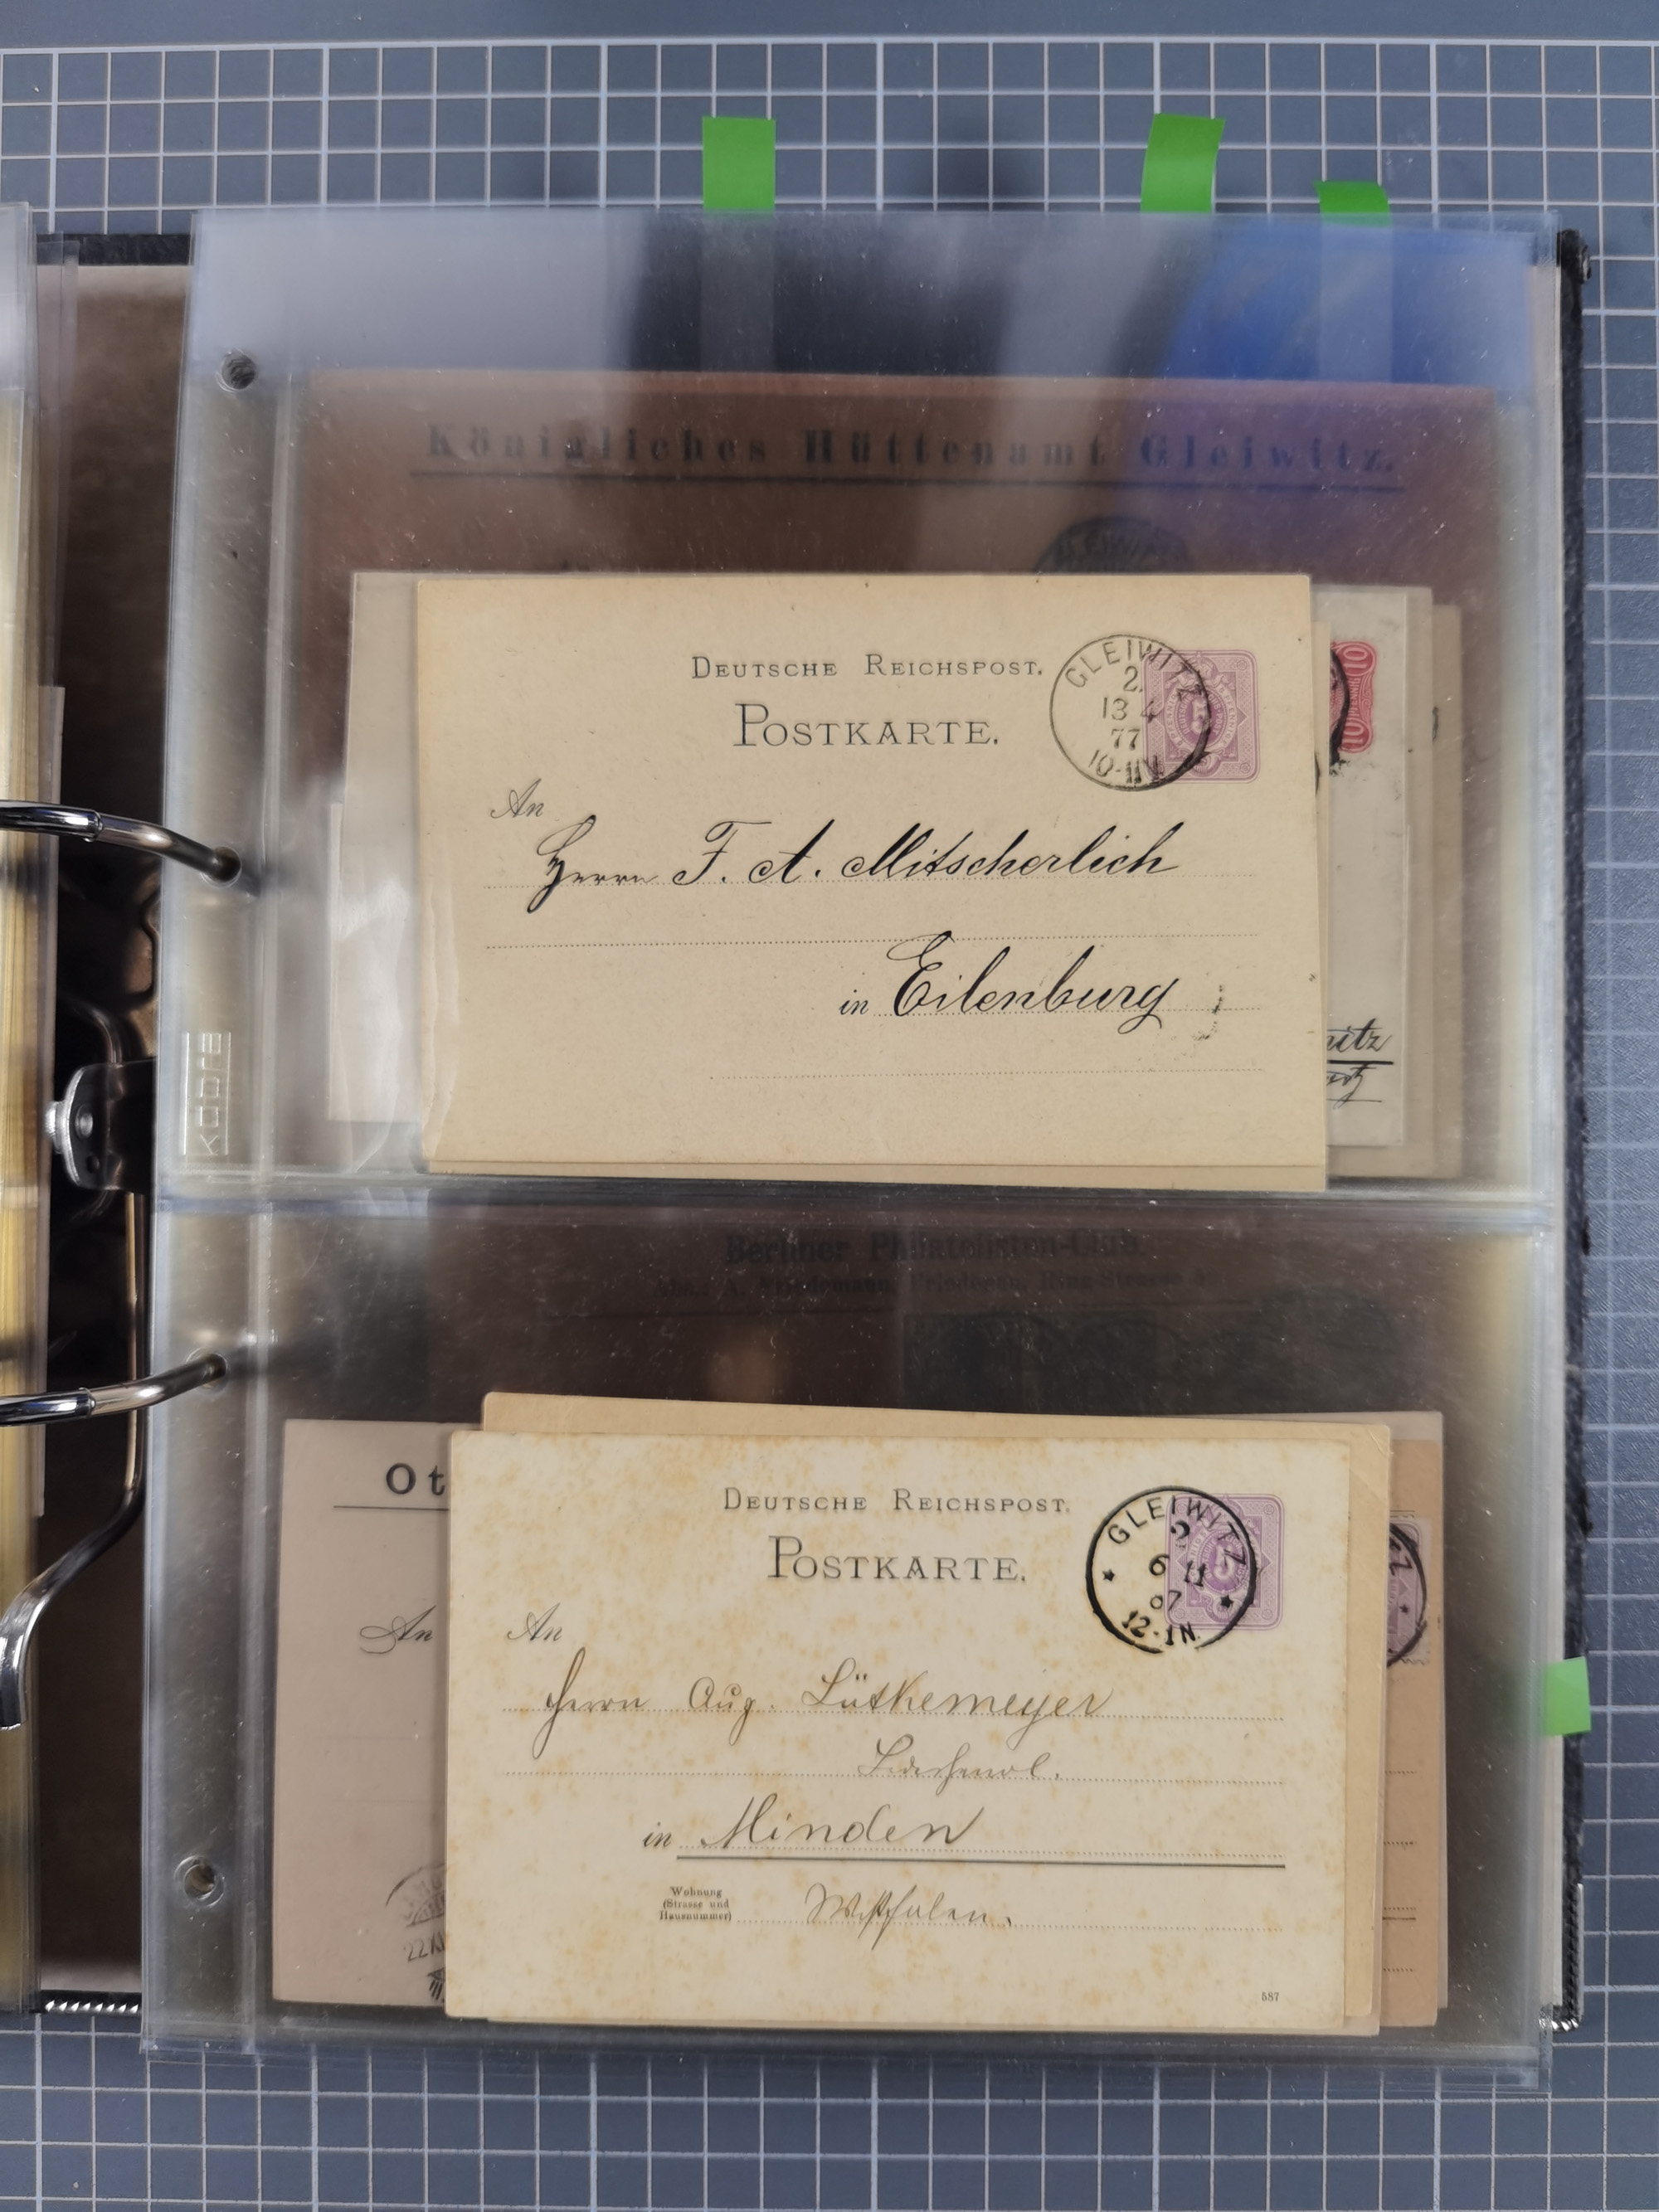 Königliches Hüttenamt Gleiwitz.
DEUTSCHE REICHSPOST.
POSTKARTE.
GLEIWITZ
2.
13 4
77
10-11V
10
10
An
Herrn F. A. Mitscherlich
in Eilenburg
nitz
KOBRA
Berliner Philatelisten-Club.
A. Friedemann, Friedenau, Ring-Strasse
Ot
An
22 XI
DEUTSCHE REICHSPOST.
POSTKARTE.
GLEIWITZ
2
6 11
87
12-1N.
5
An
Herrn Aug. Lütkemeyer
in Minden
Wohnung
(Strasse und
Hausnummer)
Westfalen.
587